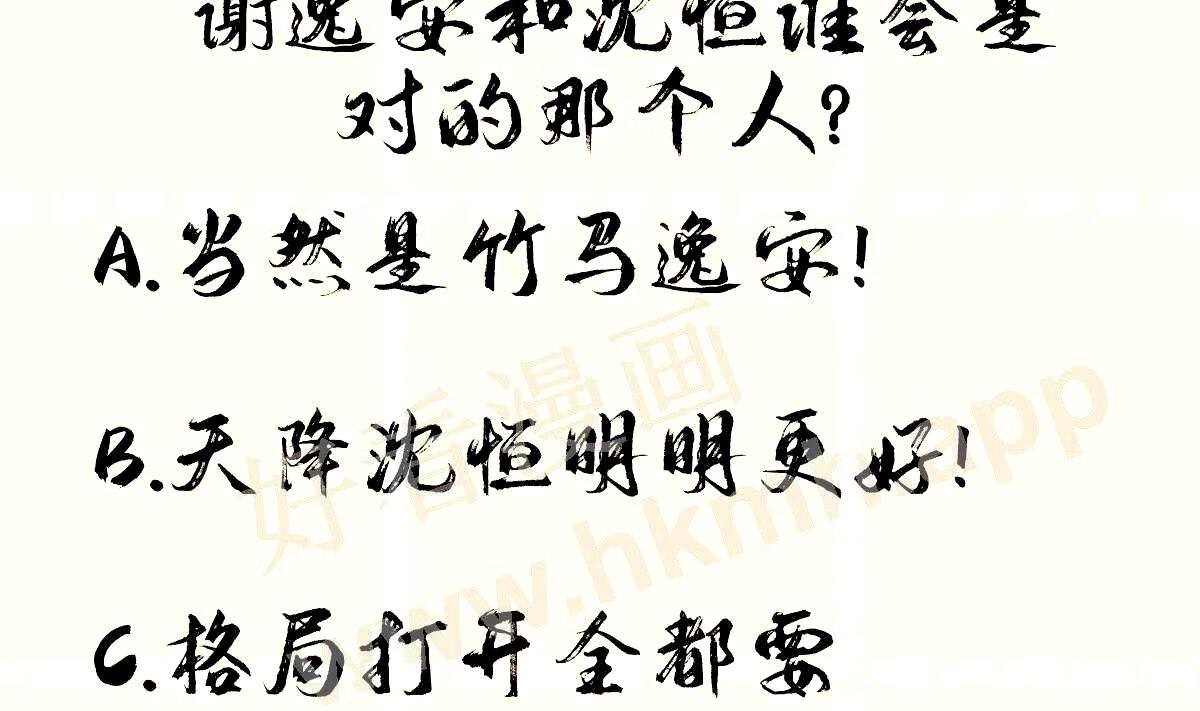 谢逸安和沈恒谁会是
对的那个人?
A.当然是竹马逸安!
好看漫画
B.天降沈恒明明更好!
www.hkmh.app
C.格局打开全都要